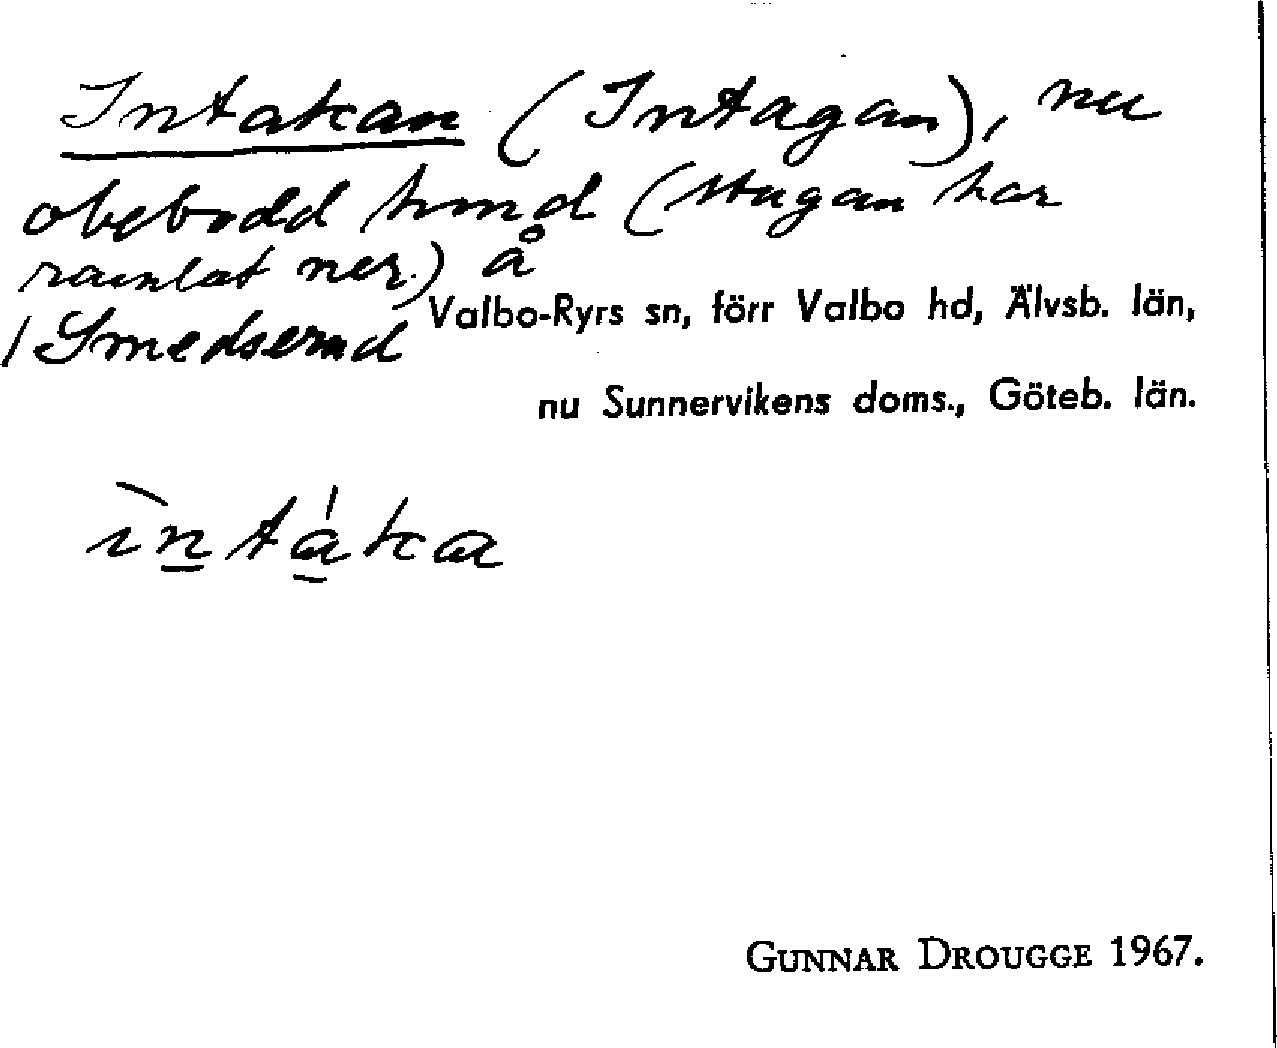 Intakan (Intagan), nu
obebodd tomt (stugan har
ramlat ner.) å
/Smedserud
Valbo-Ryrs sn, förr Valbo hd, Älvsb. län,
nu Sunnervikens doms., Göteb. län.
ìntáka
GUNNAR DROUGGE 1967.